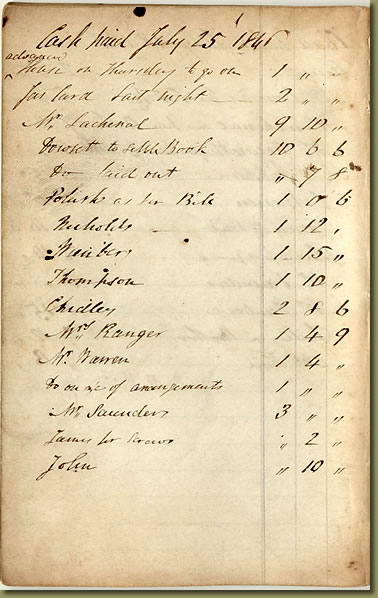 Cash paid July 25 1846
advanced
these on Thursday to go on 1 " "
Jas Card last night 2 " "
Mr. Lachenal 9 10 "
Dowsett to settle Book 10 6 6
Do paid out " 7 8
Polish as per Bill 1 0 6
Nicholds 1 12 "
1 15 "
Thompson 1 10 "
Chidley 2 8 6
Mrs Ranger 1 4 9
Mr. Warren 1 4 "
Do on a/c of arrangements 1 " "
Mr. Saunders 3 " "
James for Screws " 2 "
John " 10 "